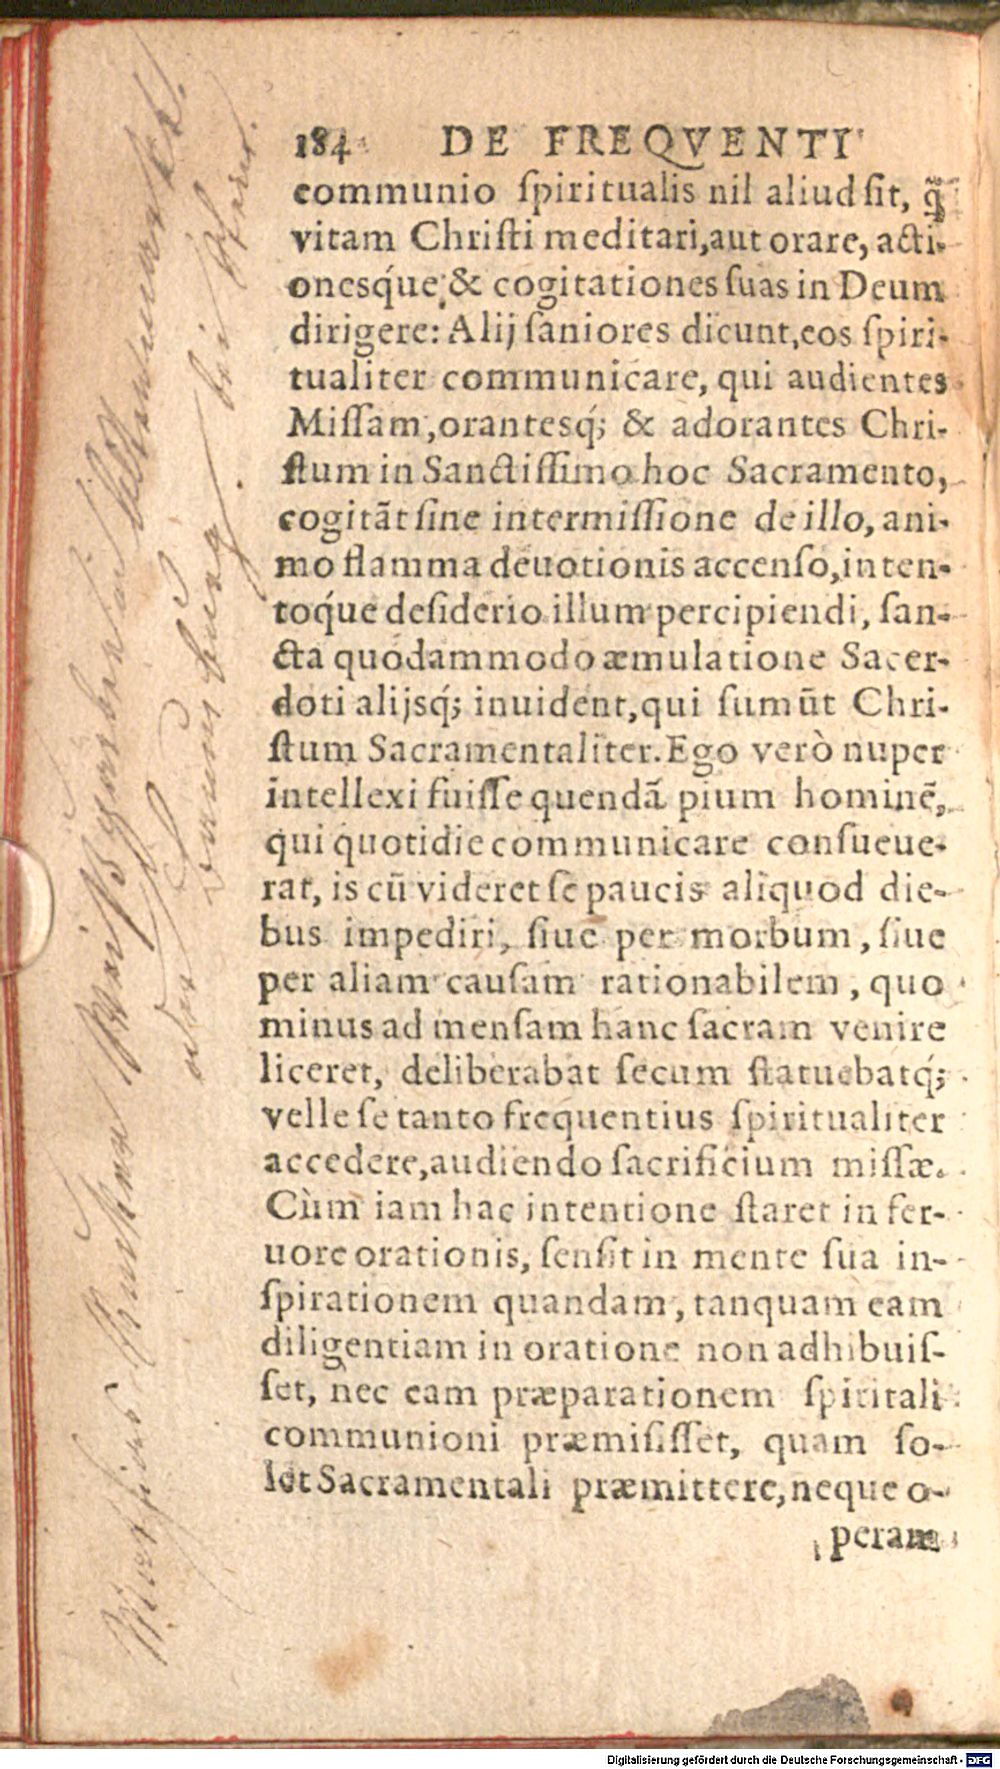 184 DE FREQVENTI
communio ſpiritualis nil aliud ſit, q̃
vitam Chriſti meditari,aut orare, acti-
onesq́ue & cogitationes ſuas in Deum
dirigere: Alij ſaniores dicunt,eos ſpiri-
tualiter communicare, qui audientes
Miſſam,orantesq́; & adorantes Chri-
ſtum in Sanctiſſimo hoc Sacramento,
cogitãt ſine intermiſſione de illo, ani-
mo flamma deuotionis accenſo,inten-
toq́ue deſiderio illum percipiendi, ſan-
cta quodammodo æmulatione Sacer-
doti alijsq́; inuident,qui ſumũt Chri-
ſtum Sacramentaliter.Ego verò nuper
intellexi fuiſſe quendã pium hominẽ,
qui quotidie communicare conſueue-
rat, is cũ videret ſe paucis aliquod die-
bus impediri, ſiue per morbum, ſiue
per aliam cauſam rationabilem, quo
minus ad menſam hanc ſacram venire
liceret, deliberabat ſecum ſtatuebatq́;
velle ſe tanto frequentius ſpiritualiter
accedere,audiendo ſacrificium miſſæ.
Cùm iam hac intentione ſtaret in fer-
uore orationis, ſenſit in mente ſua in-
ſpirationem quandam, tanquam eam
diligentiam in oratione non adhibuiſ-
ſet, nec eam præparationem ſpiritali
communioni præmiſiſſet, quam ſo-
let Sacramentali præmittere,neque o-
peram
Digitalisierung gefördert durch die Deutsche Forschungsgemeinschaft - DFG